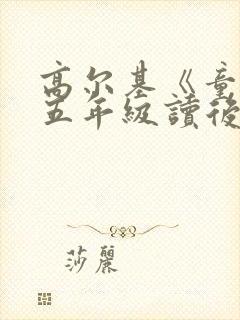 高尔基《童
五年級讀後
莎麗